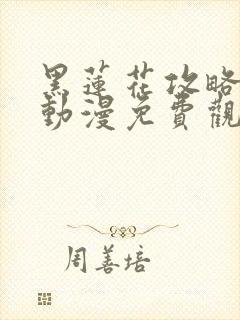 黑蓮花攻略
動漫免費觀
周善培